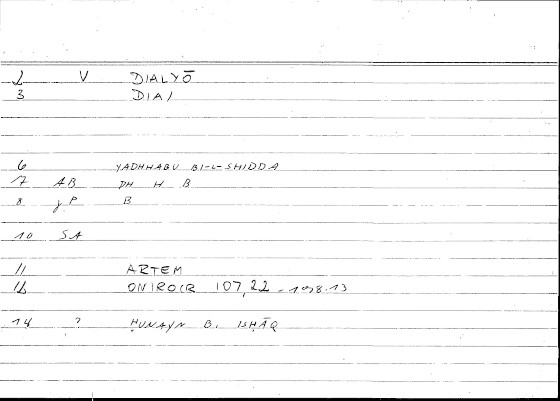 2 V DIALYŌ
3 DIA/
6 YADHHABU BI-L-SHIDDA
7 AB DH H B
8 JP B
10 SA
11 ARTEM
12 ONIROCR 107,22 - 108.13
14 ? ḤUNAYN B. ISḤĀQ